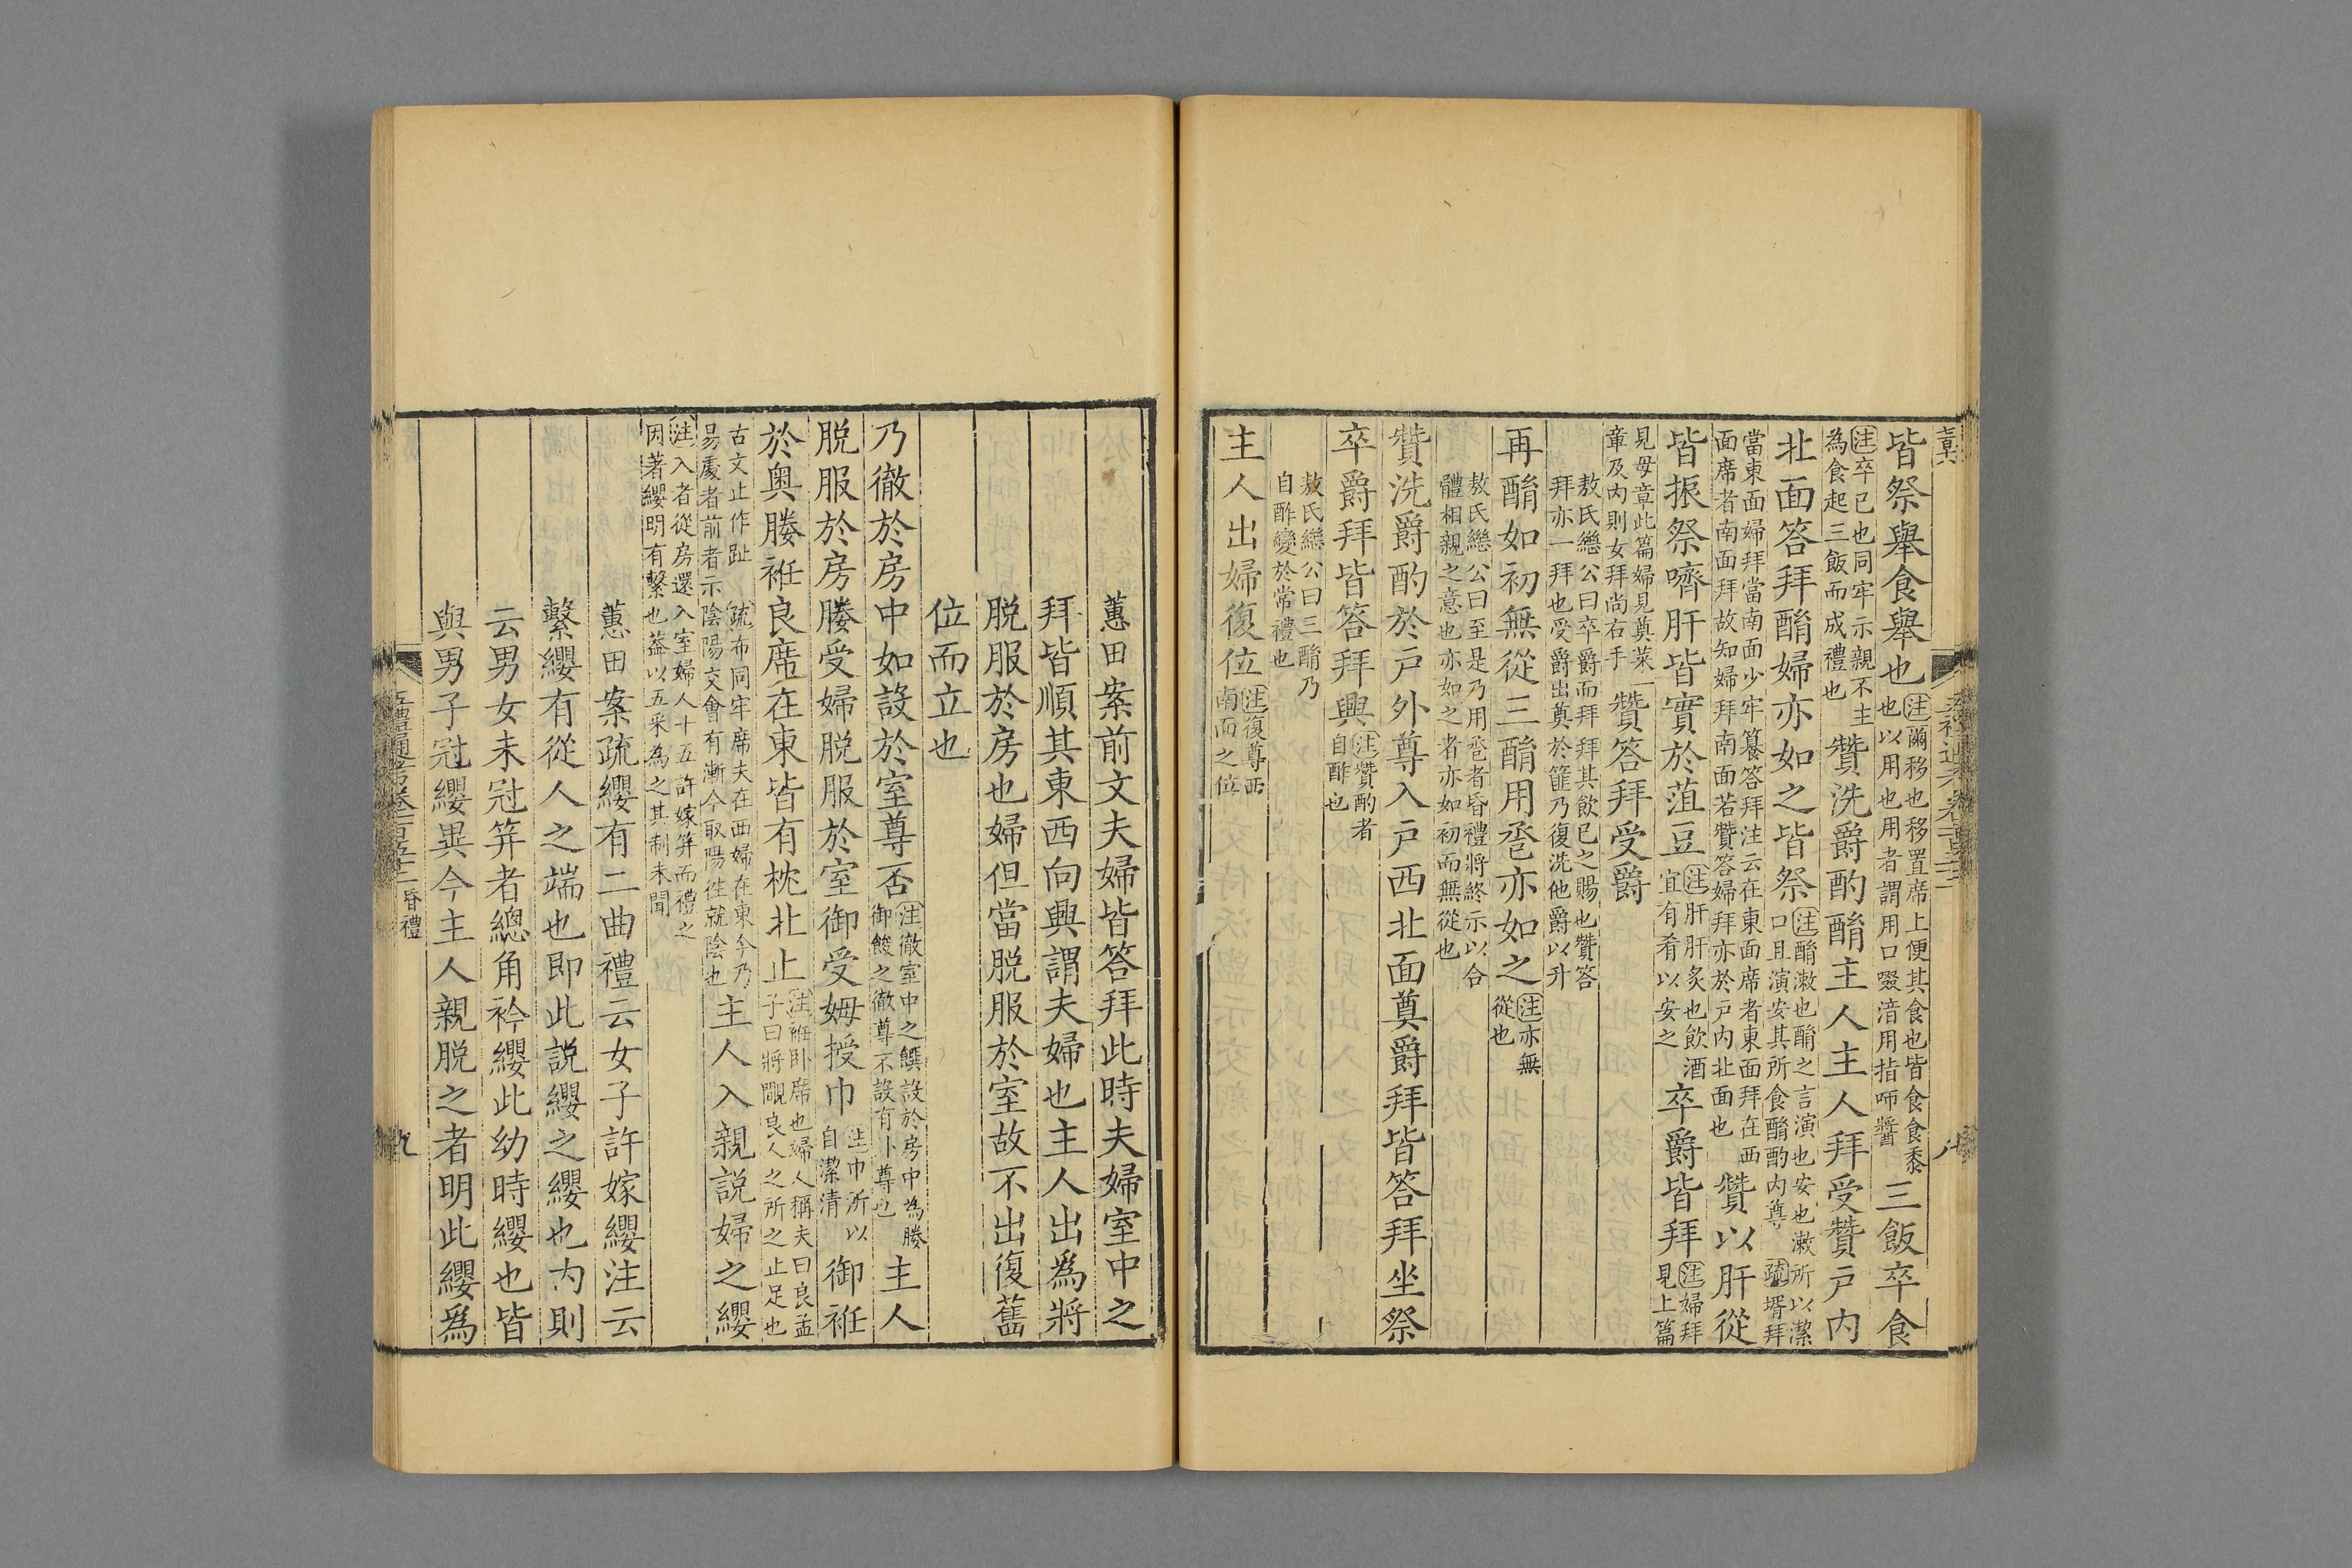 皆祭舉食舉也注爾移也移置席上便其食也皆食食黍也以用也用者謂用口啜湆用指㕮醬三飯卒食
注卒已也同牢示親不主為食起三飯而成禮也贊洗爵酌酳主人主人拜受贊戶內
北面答拜酳婦亦如之皆祭注酳漱也酳之言演也安也漱所以潔口且演安其所食酳酌內尊疏壻拜
當東面婦拜當南面少牢籑答拜注云在東面席者東面拜在西面席者南面拜故知婦拜南面若贊答婦拜亦於戶內北面也贊以肝從
皆振祭嚌肝皆實於菹豆注肝肝炙也飲酒宜有肴以安之卒爵皆拜注婦拜見上篇
見母章此篇婦見奠菜一章及內則女拜尚右手贊答拜受爵
敖氏繼公曰卒爵而拜拜其飲已之賜也贊答拜亦一拜也受爵出奠於篚乃復洗他爵以升
再酳如初無從三酳用巹亦如之注亦無從也
敖氏繼公曰至是乃用巹者昏禮將終示以合體相親之意也亦如之者亦如初而無從也
贊洗爵酌於戶外尊入戶西北面奠爵拜皆答拜坐祭
卒爵拜皆答拜興注贊酌者自酢也
敖氏繼公曰三酳乃自酢變於常禮也
主人出婦復位注復尊西南面之位
蕙田案前文夫婦皆答拜此時夫婦室中之
拜皆順其東西向興謂夫婦也主人出爲將
脫服於房也婦但當脫服於室故不出復舊
位而立也
乃徹於房中如設於室尊否注徹室中之饌設於房中為媵御餕之徹尊不設有外尊也主人
脫服於房媵受婦脫服於室御受姆授巾注巾所以自潔清御衽
於奥媵衽良席在東皆有枕北止注衽卧席也婦人稱夫曰良孟子曰將瞷良人之所之止足也
古文止作趾疏布同牢席夫在西婦在東今乃易處者前者示陰陽交會有漸今取陽往就陰也主人入親說婦之纓
注入者從房還入室婦人十五許嫁笄而禮之因著纓明有繫也蓋以五采為之其制未聞
蕙田案疏纓有二曲禮云女子許嫁纓注云
繫纓有從人之端也即此說纓之纓也內則
云男女未冠笄者總角衿纓此幼時纓也皆
與男子冠纓異今主人親脫之者明此纓爲
五禮通考卷一百五十二昏禮
九